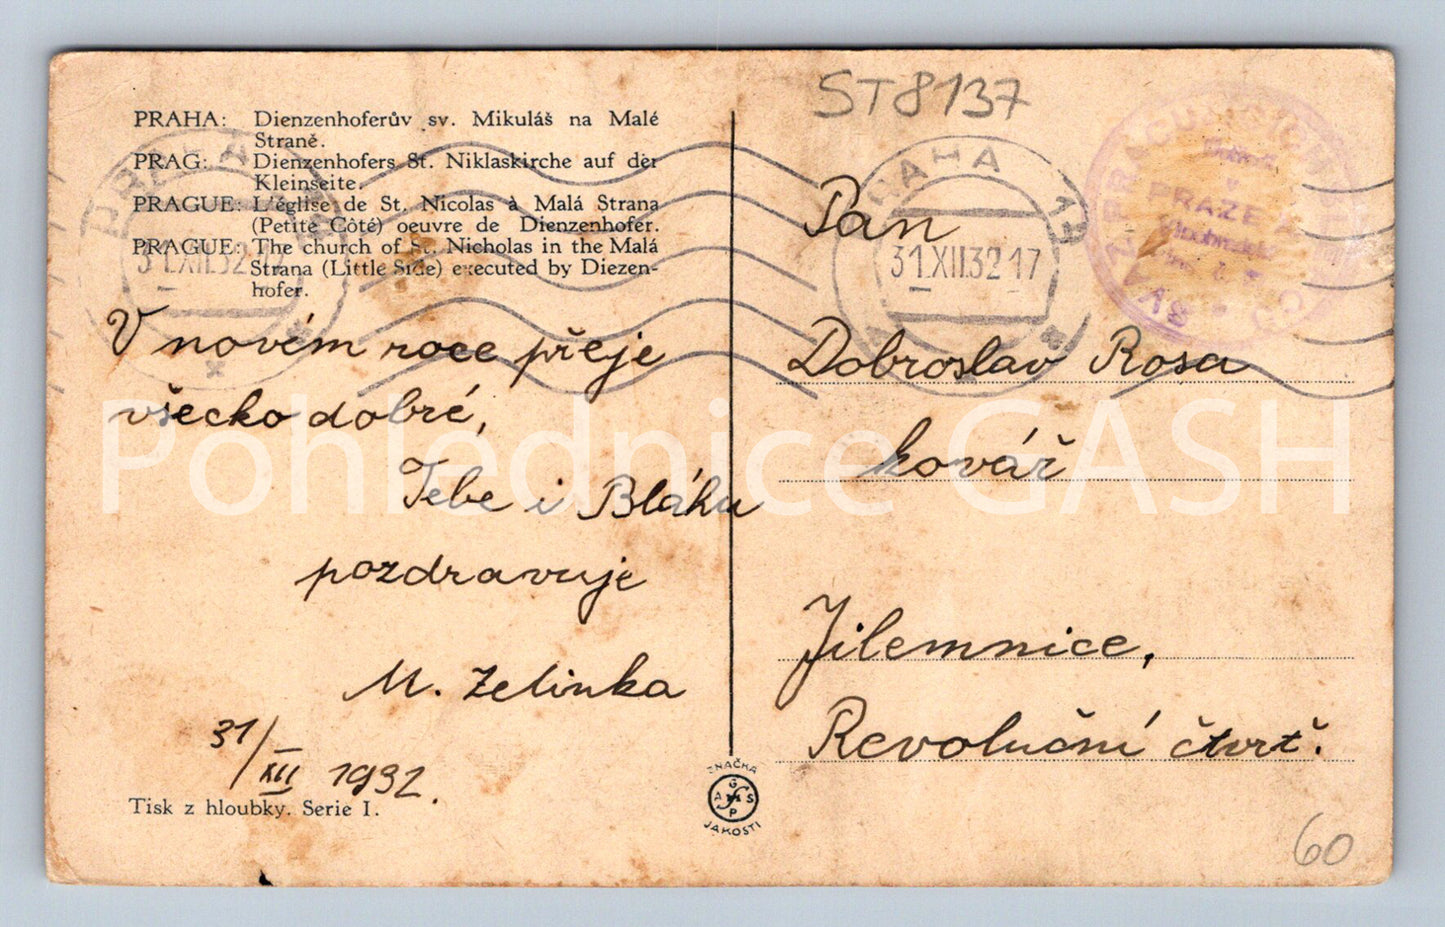 PRAHA: Dienzenhoferův sv. Mikuláš na Malé
Straně.
PRAG: Dienzenhofers St. Niklaskirche auf der
Kleinseite.
PRAGUE: L'église de St. Nicolas à Malá Strana
(Petite Côté) oeuvre de Dienzenhofer.
PRAGUE: The church of St. Nicholas in the Malá
Strana (Little Side) executed by Diezen-
hofer.
V novém roce přeje
všecko dobré,
Tebe i Bláhu
pozdravuje
M. Zelinka
31/XII 1932.
Tisk z hloubky. Serie I.
ZNAČKA
G
A S
P
JAKOSTI
ST8137
PRAHA 13
31.XII.32 17
PRAHA
31.XII.32
PRAZE
Pan
Dobroslav Rosa
kovář
Jilemnice,
Revoluční čtvrť.
60
Pohlednice GASH